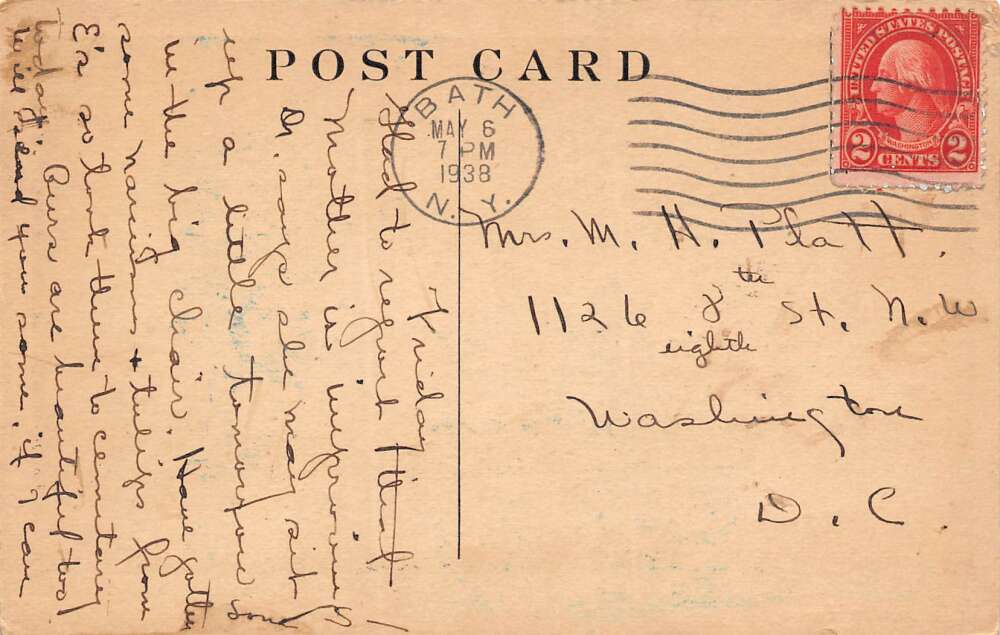 POST CARD
BATH
MAY 6
7 PM
1938
N. Y.
UNITED STATES POSTAGE
WASHINGTON
2 CENTS 2
Friday
Glad to report that
Mother is improving-
Dr. says she may sit
up a little tomorrow some
in the big chair. Have gotten
some narcissus + tulips from
E's so took these to cemetary
today. Ours are beautiful too!
Will send you some if I can
Mrs. M. H. Platt.
1126 8th St. N.W
eighth
Washington
D. C.